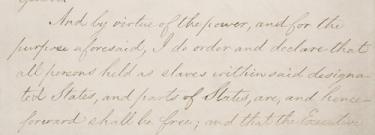 And by virtue of the power, and for the
purpose aforesaid, I do order and declare that
all persons held as slaves within said designa-
ted States, and parts of States, are, and hence-
forward shall be free; and that the Executive